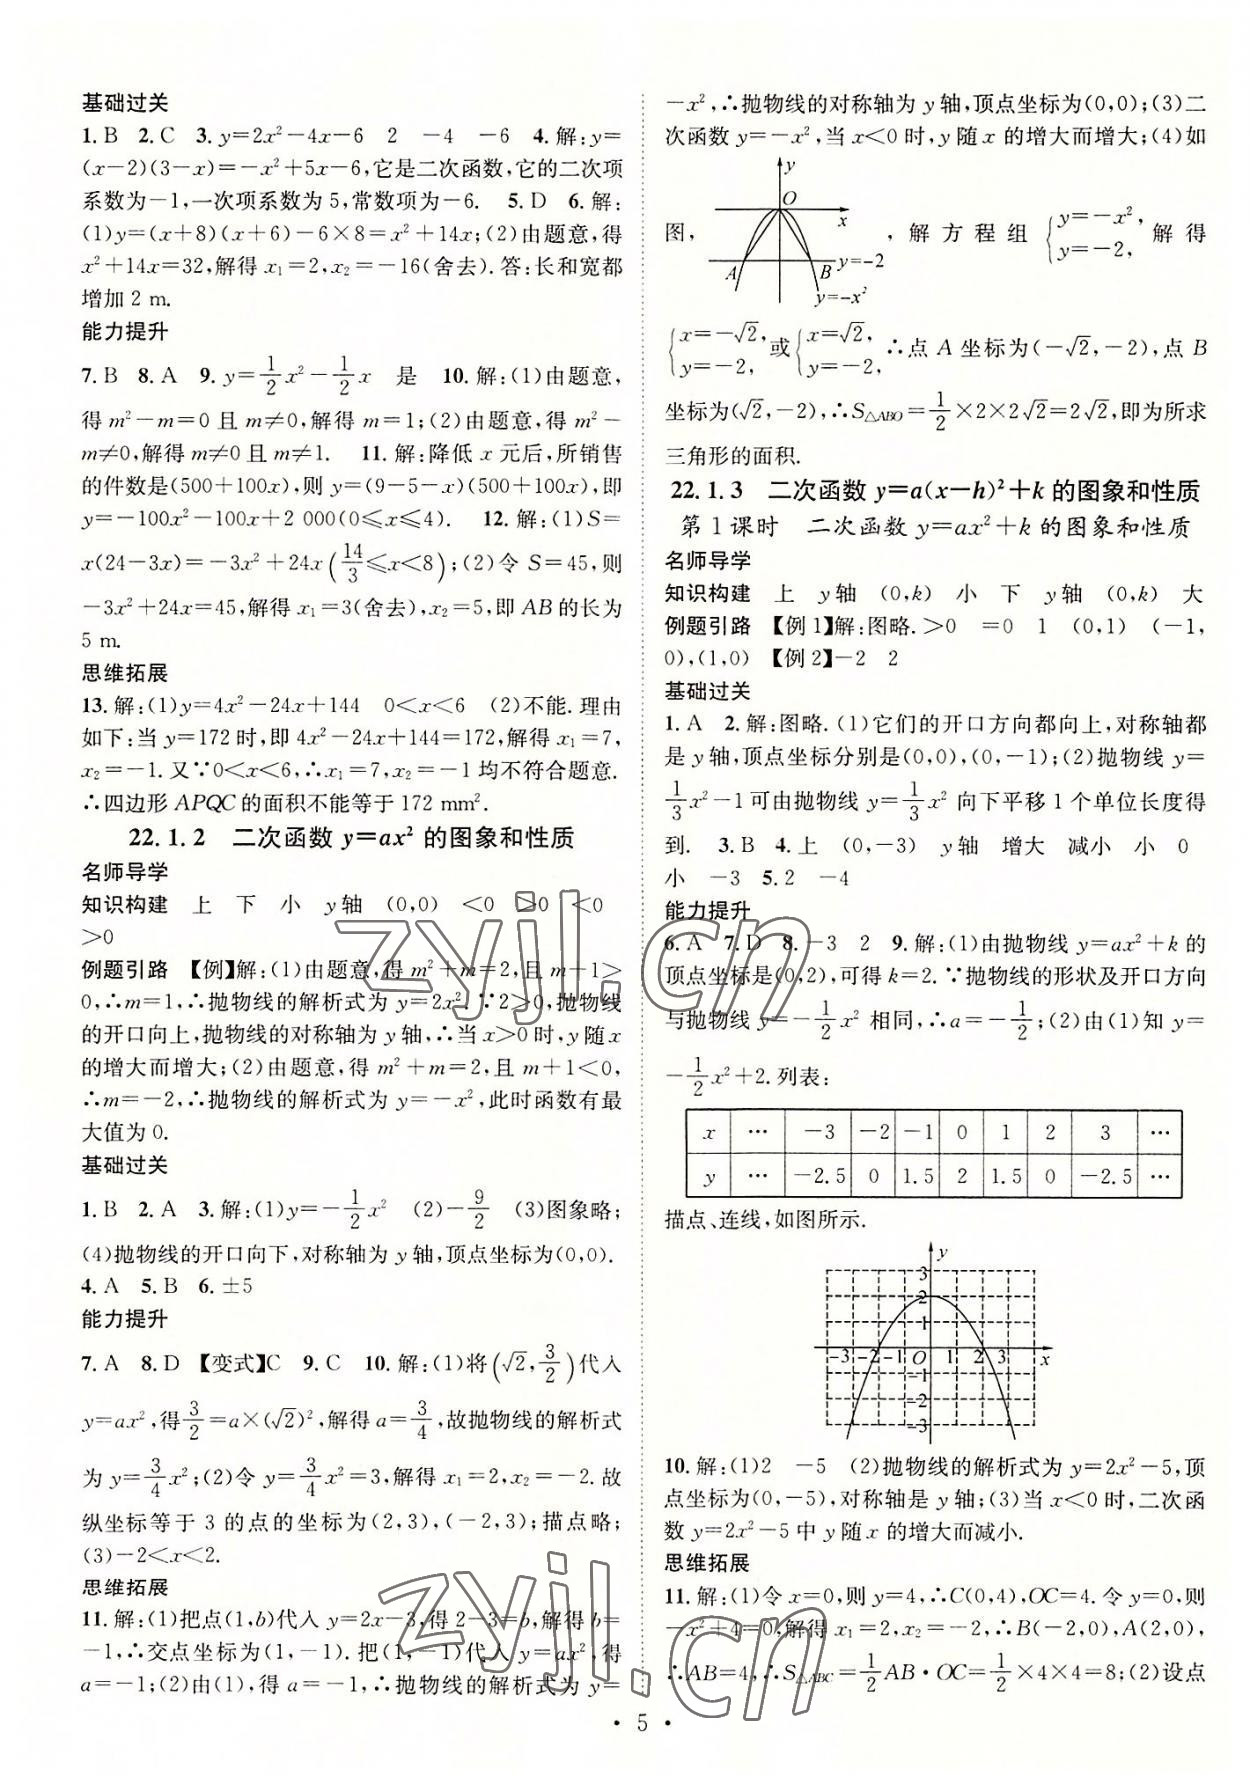 基础过关
1. B  2. C  3. y=2x²-4x-6  2  -4  -6  4. 解:y=
(x-2)(3-x)=-x²+5x-6,它是二次函数,它的二次项
系数为-1,一次项系数为 5,常数项为-6.  5. D  6. 解:
(1)y=(x+8)(x+6)-6×8=x²+14x;(2)由题意,得
x²+14x=32,解得 x₁=2,x₂=-16(舍去).答:长和宽都
增加 2 m.
能力提升
7. B  8. A  9. y=1/2x²-1/2x  是  10. 解:(1)由题意,
得 m²-m=0 且 m≠0,解得 m=1;(2)由题意,得 m²-
m≠0,解得 m≠0 且 m≠1.  11. 解:降低 x 元后,所销售
的件数是(500+100x),则 y=(9-5-x)(500+100x),即
y=-100x²-100x+2 000(0⩽x⩽4).  12. 解:(1)S=
x(24-3x)=-3x²+24x(14/3⩽x<8);(2)令 S=45,则
-3x²+24x=45,解得 x₁=3(舍去),x₂=5,即 AB 的长为
5 m.
思维拓展
13. 解:(1)y=4x²-24x+144  0<x<6  (2)不能.理由
如下:当 y=172 时,即 4x²-24x+144=172,解得 x₁=7,
x₂=-1.又∵0<x<6,∴x₁=7,x₂=-1 均不符合题意.
∴四边形 APQC 的面积不能等于 172 mm².
22.1.2  二次函数 y=ax² 的图象和性质
名师导学
知识构建  上  下  小  y 轴  (0,0)  <0  >0  <0
>0
例题引路  【例】解:(1)由题意,得 m²+m=2,且 m+1>
0,∴m=1,∴抛物线的解析式为 y=2x².∵2>0,抛物线
的开口向上,抛物线的对称轴为 y 轴,∴当 x>0 时,y 随 x
的增大而增大;(2)由题意,得 m²+m=2,且 m+1<0,
∴m=-2,∴抛物线的解析式为 y=-x²,此时函数有最
大值为 0.
基础过关
1. B  2. A  3. 解:(1)y=-1/2x²  (2)-9/2  (3)图象略;
(4)抛物线的开口向下,对称轴为 y 轴,顶点坐标为(0,0).
4. A  5. B  6. ±5
能力提升
7. A  8. D  【变式】C  9. C  10. 解:(1)将(√2,3/2)代入
y=ax²,得3/2=a×(√2)²,解得 a=3/4,故抛物线的解析式
为 y=3/4x²;(2)令 y=3/4x²=3,解得 x₁=2,x₂=-2.故
纵坐标等于 3 的点的坐标为(2,3),(-2,3);描点略;
(3)-2<x<2.
思维拓展
11. 解:(1)把点(1,b)代入 y=2x-3,得 2-3=b,解得 b=
-1,∴交点坐标为(1,-1).把(1,-1)代入 y=ax²,得
a=-1;(2)由(1),得 a=-1,∴抛物线的解析式为 y=
-x²,∴抛物线的对称轴为 y 轴,顶点坐标为(0,0);(3)二
次函数 y=-x²,当 x<0 时,y 随 x 的增大而增大;(4)如
图,
y
O
x
A
B
y=-2
y=-x²
,解方程组 {y=-x², y=-2, 解得
{x=-√2, y=-2, 或 {x=√2, y=-2, ∴点 A 坐标为(-√2,-2),点 B
坐标为(√2,-2),∴S△ABO=1/2×2×2√2=2√2,即为所求
三角形的面积.
22.1.3  二次函数 y=a(x-h)²+k 的图象和性质
第 1 课时  二次函数 y=ax²+k 的图象和性质
名师导学
知识构建  上  y 轴  (0,k)  小  下  y 轴  (0,k)  大
例题引路  【例 1】解:图略.>0  =0  1  (0,1)  (-1,
0),(1,0)  【例 2】-2  2
基础过关
1. A  2. 解:图略.(1)它们的开口方向都向上,对称轴都
是 y 轴,顶点坐标分别是(0,0),(0,-1);(2)抛物线 y=
1/3x²-1 可由抛物线 y=1/3x² 向下平移 1 个单位长度得
到.  3. B  4. 上  (0,-3)  y 轴  增大  减小  小  0
小  -3  5. 2  -4
能力提升
6. A  7. D  8. -3  2  9. 解:(1)由抛物线 y=ax²+k 的
顶点坐标是(0,2),可得 k=2.∵抛物线的形状及开口方向
与抛物线 y=-1/2x² 相同,∴a=-1/2;(2)由(1)知 y=
-1/2x²+2.列表:
x  …  -3  -2  -1  0  1  2  3  …
y  …  -2.5  0  1.5  2  1.5  0  -2.5  …
描点、连线,如图所示.
y
3
2
1
-3 -2 -1 O 1 2 3 x
-1
-2
-3
10. 解:(1)2  -5  (2)抛物线的解析式为 y=2x²-5,顶
点坐标为(0,-5),对称轴是 y 轴;(3)当 x<0 时,二次函
数 y=2x²-5 中 y 随 x 的增大而减小.
思维拓展
11. 解:(1)令 x=0,则 y=4,∴C(0,4),OC=4.令 y=0,则
-x²+4=0,解得 x₁=2,x₂=-2,∴B(-2,0),A(2,0),
∴AB=4,∴S△ABC=1/2AB·OC=1/2×4×4=8;(2)设点
· 5 ·
zyjl.cn
zyjl.cn